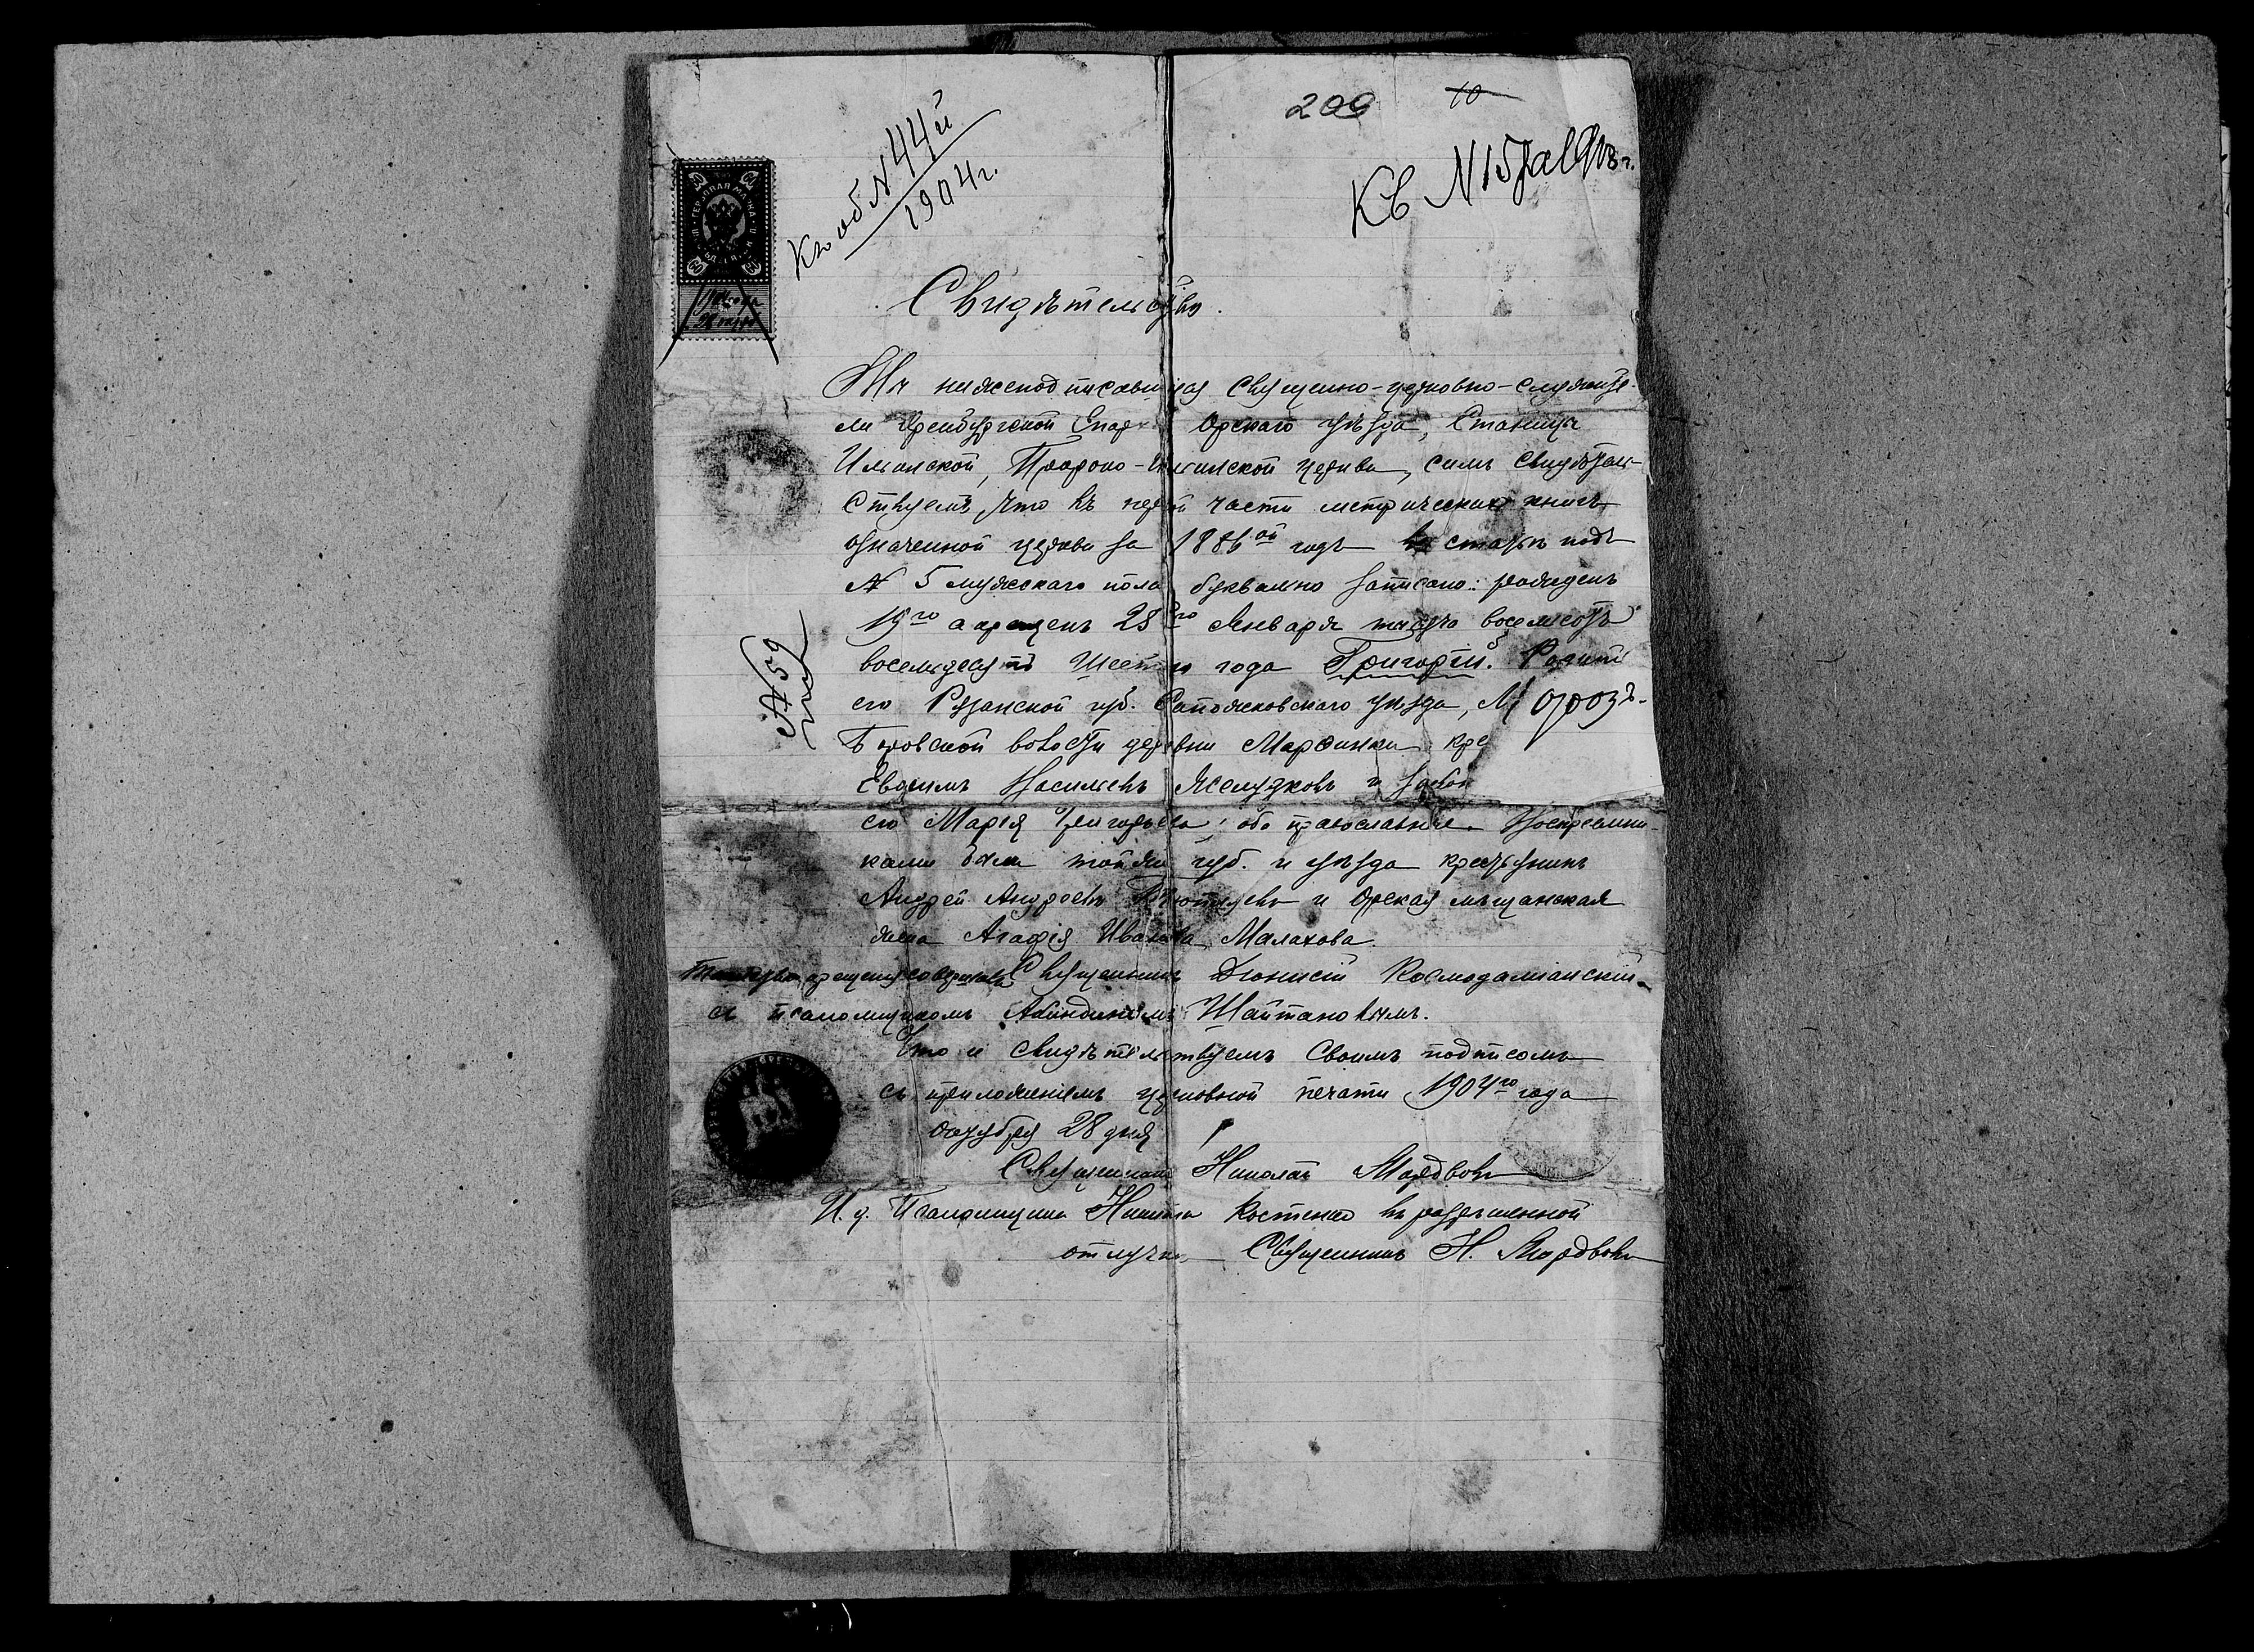 209 10
Къ об N 44й
1904 г.
Къ N 15 1908 г.
ГЕРБОВАЯ МАРКА
Свидѣтельство.
Мы нижеподписавшіяся священно-церковно-служите-
ли Оренбургской Епар Орскаго уѣзда, Станицы
Ильинской, Пророко-Ильинской церкви, симъ свидѣтель-
ствуемъ, что въ первой части метрической книги
означенной церкви за 1886ой годъ въ статьѣ подъ
N 5 мужскаго пола буквально записано: рожденъ
19го а крещенъ 28го Января тысяча восемьсотъ
восемьдесятъ Шестаго года Григорій. Родит
его Рязанской губ. Сапожковскаго уѣзда, Морозъ-
Боровской волости деревни Марфинки кре
Евдокимъ Васильевъ Желудковъ и закон
его Марія Григорьева; оба православные. Воспреемни-
ками были той же губ. и уѣзда крестьянинъ
Андрей Андреевъ и Орская мѣщанская
жена Агафія Иванова Малахова.
Таинство крещенія совершалъ Священникъ Діонисій Космодаміанскій
съ псаломщикомъ Акиндиномъ Шайтановымъ.
Что и свидѣтельствуемъ своимъ подписомъ
съ приложеніемъ церковной печати 1904го года
октября 28 дня
Священникъ Николай Мордвовъ
И. д. Псаломщика Никита Костенко въ разрѣшенной
отлучкѣ. Священникъ Н. Мордвовъ
N 59